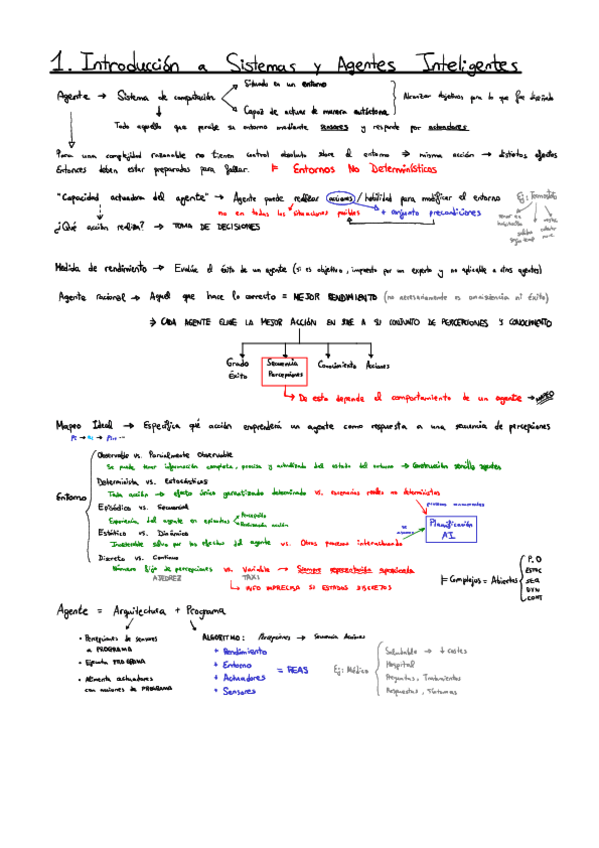 1. Introducción a Sistemas y Agentes Inteligentes
Agente → Sistema de computación
Situado en un entorno
Capaz de actuar de manera autónoma
Alcanzar objetivos para lo que fue diseñado
Todo aquello que percibe su entorno mediante sensores y responde por actuadores
Para una complejidad razonable no tienen control absoluto sobre el entorno ⇒ misma acción → distintos efectos
Entonces deben estar preparados para fallar. ⊨ Entornos No Determinísticos
"Capacidad actuadora del agente" → Agente puede realizar acciones / habilidad para modificar el entorno
no en todas las situaciones posibles
+ conjunto precondiciones
¿Qué acción realizar? → TOMA DE DECISIONES
Medida de rendimiento → Evalúe el éxito de un agente (si es objetivo, impuesto por un experto y no aplicable a otros agentes)
Agente racional → Aquel que hace lo correcto = MEJOR RENDIMIENTO (no necesariamente es omnisciencia ni éxito)
⇒ CADA AGENTE ELIGE LA MEJOR ACCIÓN EN BASE A SU CONJUNTO DE PERCEPCIONES Y CONOCIMIENTO
Grado Éxito
Secuencia Percepciones
Conocimiento
Acciones
De esto depende el comportamiento de un agente → MAPEO
Mapeo Ideal → Especifica qué acción emprenderá un agente como respuesta a una secuencia de percepciones
Entorno
Observable vs. Parcialmente Observable
Se puede tener información completa, precisa y actualizada del estado del entorno → Construcción sencilla agentes
Determinista vs. Estocásticos
Toda acción → efecto único garantizado determinado vs. escenarios reales no deterministas
Episódico vs. Secuencial
Experiencia del agente en episodios
Percepción
Planificación AI
Estático vs. Dinámico
Inalterable salvo por los efectos del agente vs. Otros procesos interactuando
Discreto vs. Continuo
Número fijo de percepciones vs. Variable → Siempre representación aproximada
AJEDREZ TAXI
↳ INFO IMPRECISA SI ESTADOS DISCRETOS
⊨ Complejos = Abiertos
P.O
ESTOC
SEQ
DYN
CONT
Agente = Arquitectura + Programa
• Percepciones de sensores a PROGRAMA
• Ejecuta PROGRAMA
• Alimenta actuadores con acciones de PROGRAMA
ALGORITMO: Percepciones → Secuencia Acciones
+ Rendimiento
+ Entorno
+ Actuadores
+ Sensores
= REAS
Ej: Médico
Saludable → ↓ costes
Hospital
Preguntas, Tratamientos
Respuestas, Síntomas